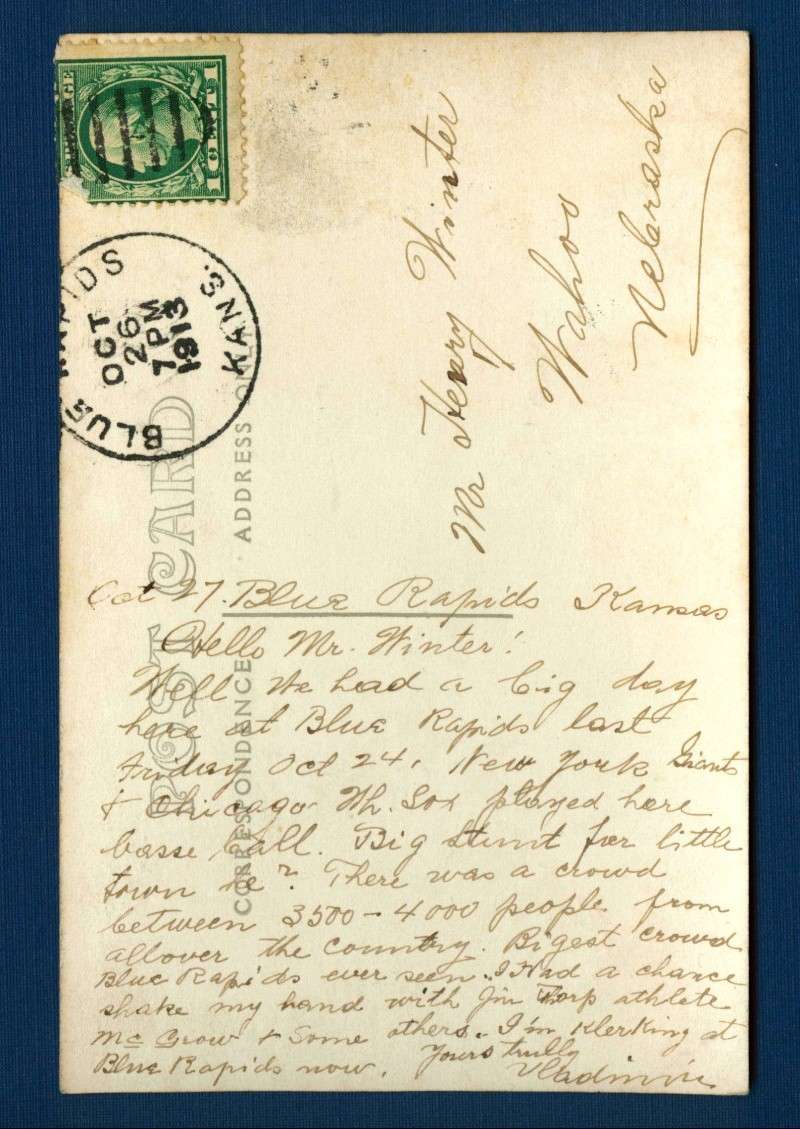 1 CENT 1
BLUE RAPIDS KANS.
OCT
26
7 PM
1913
POST CARD
CORRESPONDENCE
ADDRESS ONLY
Mr Henry Winter
Wahoo
Nebraska
Oct 27. Blue Rapids Kansas
Hello Mr. Winter!
Well we had a big day
here at Blue Rapids last
Friday Oct 24, New York Giants
+ Chicago Wh. Sox played here
basse ball. Big stunt for little
town he? There was a crowd
between 3500-4000 people from
allover the country. Bigest crowd
Blue Rapids ever seen. I Had a chance
shake my hand with Jim Thorp athlete
Mc Grow + some others. I'm klerking at
Blue Rapids now. Yours trully
Vladimir